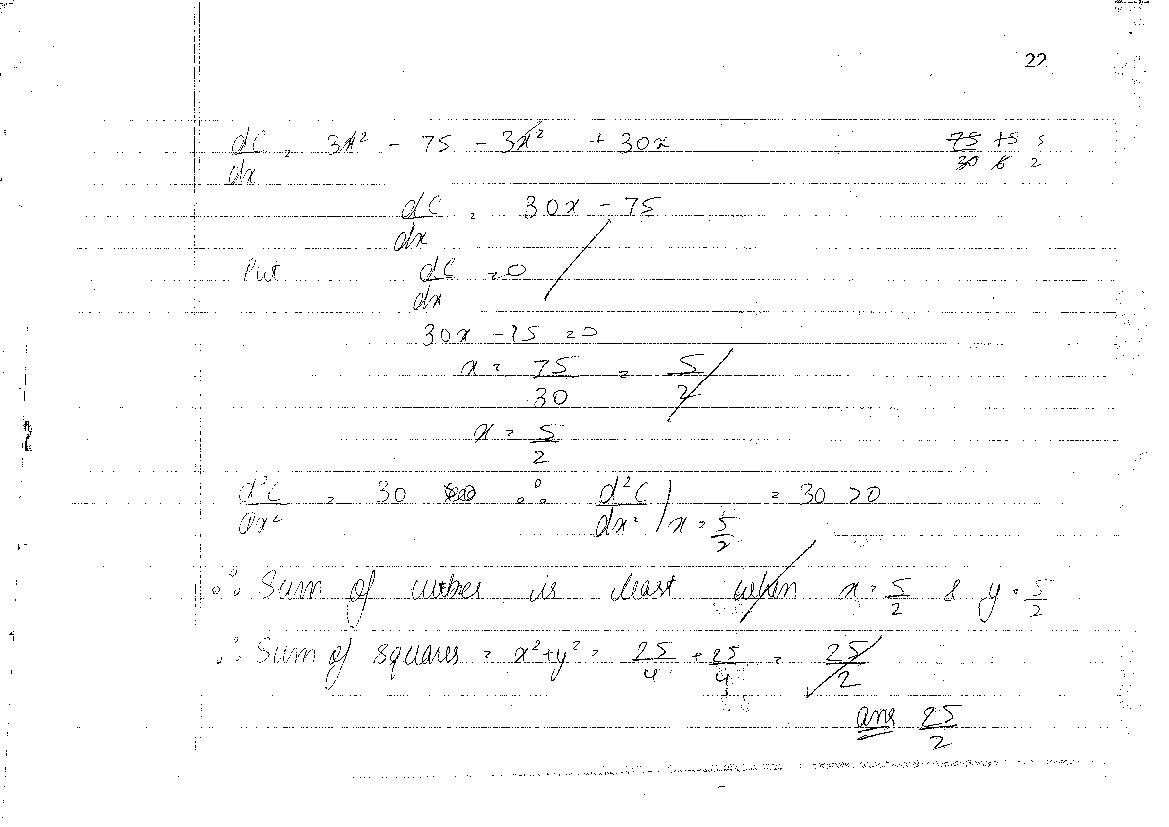 22
dC/dx = 3x² - 75 - 3x² + 30x
75/30 15/6 5/2
dC/dx = 30x - 75
Put dC/dx = 0
30x - 75 = 0
x = 75/30 = 5/2
x = 5/2
d²C/dx² = 30 ∴ d²C/dx² | x = 5/2 = 30 > 0
∴ Sum of cubes is least when x = 5/2 & y = 5/2
∴ Sum of squares = x² + y² = 25/4 + 25/4 = 25/2
ans 25/2